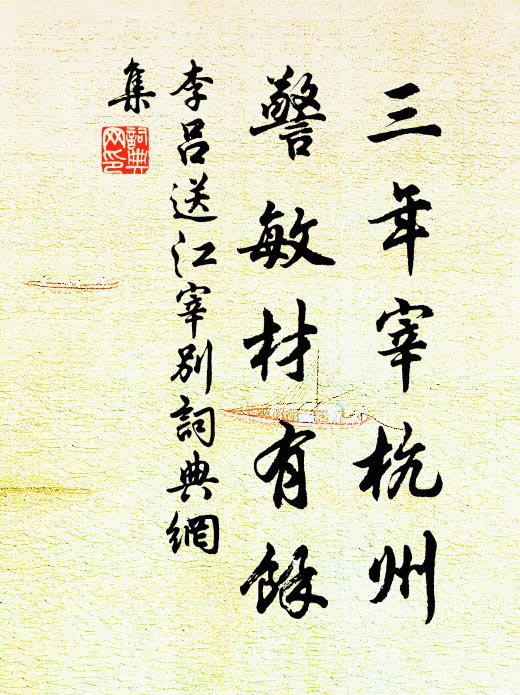 三年宰杭州
警敏材有餘
李呂送江宰別詞典網
集
詞典
网印